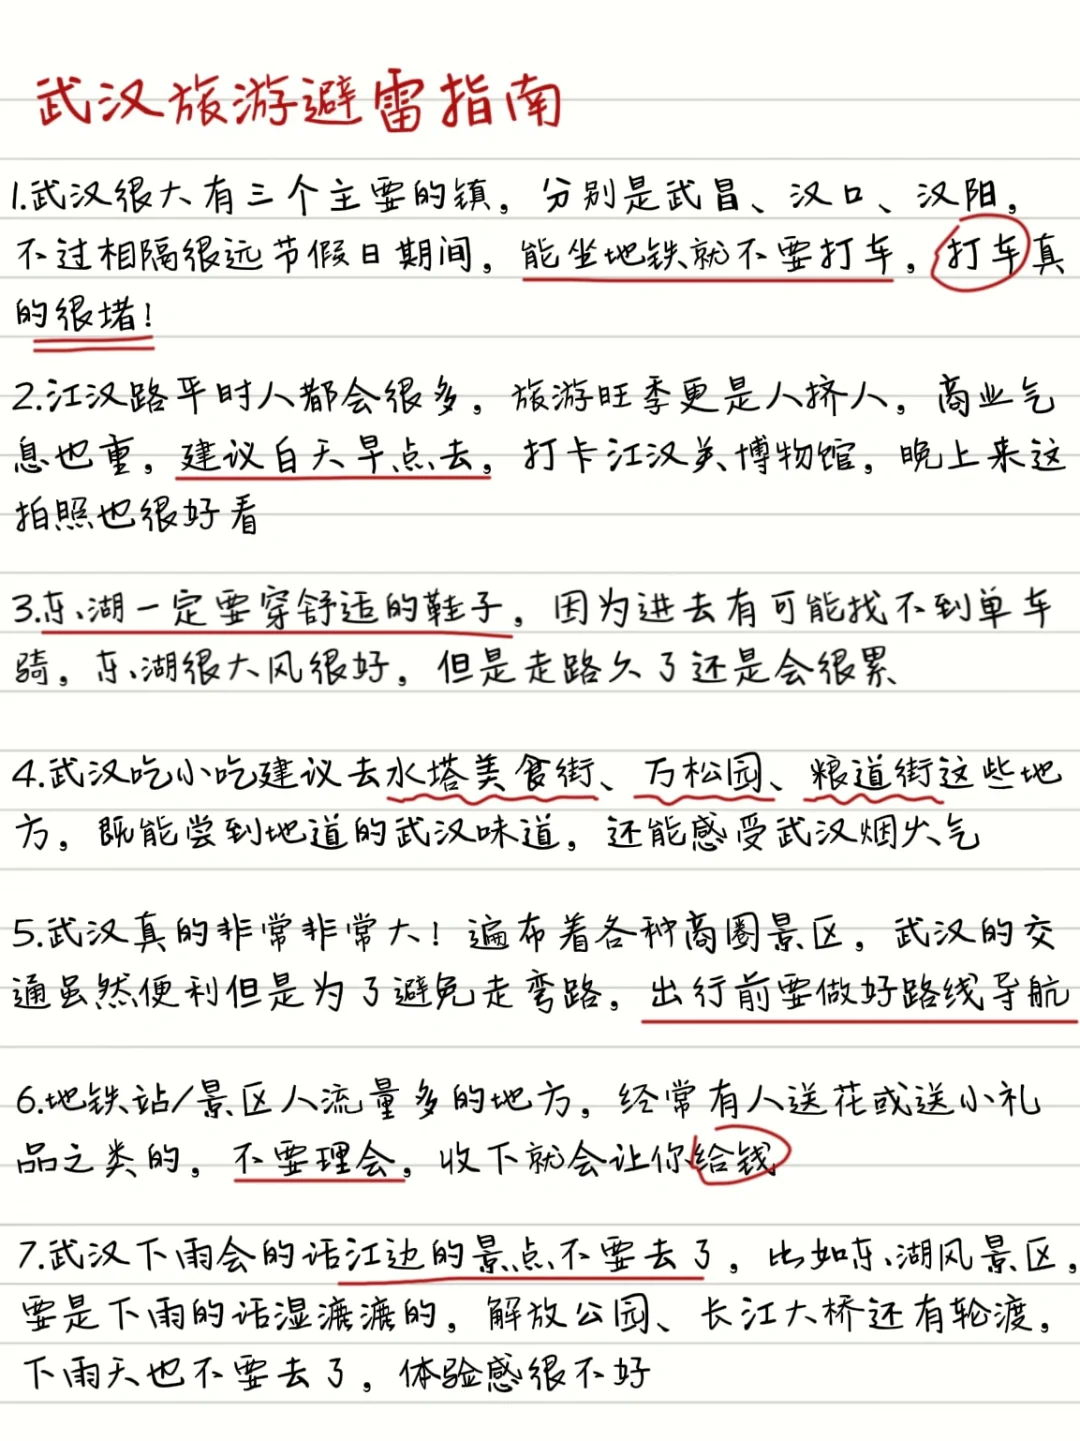 武汉旅游避雷指南
1.武汉很大有三个主要的镇，分别是武昌、汉口、汉阳，
不过相隔很远节假日期间，能坐地铁就不要打车，打车真
的很堵！
2.江汉路平时人都会很多，旅游旺季更是人挤人，商业气
息也重，建议白天早点去，打卡江汉关博物馆，晚上来这
拍照也很好看
3.东湖一定要穿舒适的鞋子，因为进去有可能找不到单车
骑，东湖很大风很好，但是走路久了还是会很累
4.武汉吃小吃建议去水塔美食街、万松园、粮道街这些地
方，既能尝到地道的武汉味道，还能感受武汉烟火气
5.武汉真的非常非常大！遍布着各种商圈景区，武汉的交
通虽然便利但是为了避免走弯路，出行前要做好路线导航
6.地铁站/景区人流量多的地方，经常有人送花或送小礼
品之类的，不要理会，收下就会让你给钱
7.武汉下雨会的话江边的景点不要去了，比如东湖风景区，
要是下雨的话湿漉漉的，解放公园、长江大桥还有轮渡，
下雨天也不要去了，体验感很不好